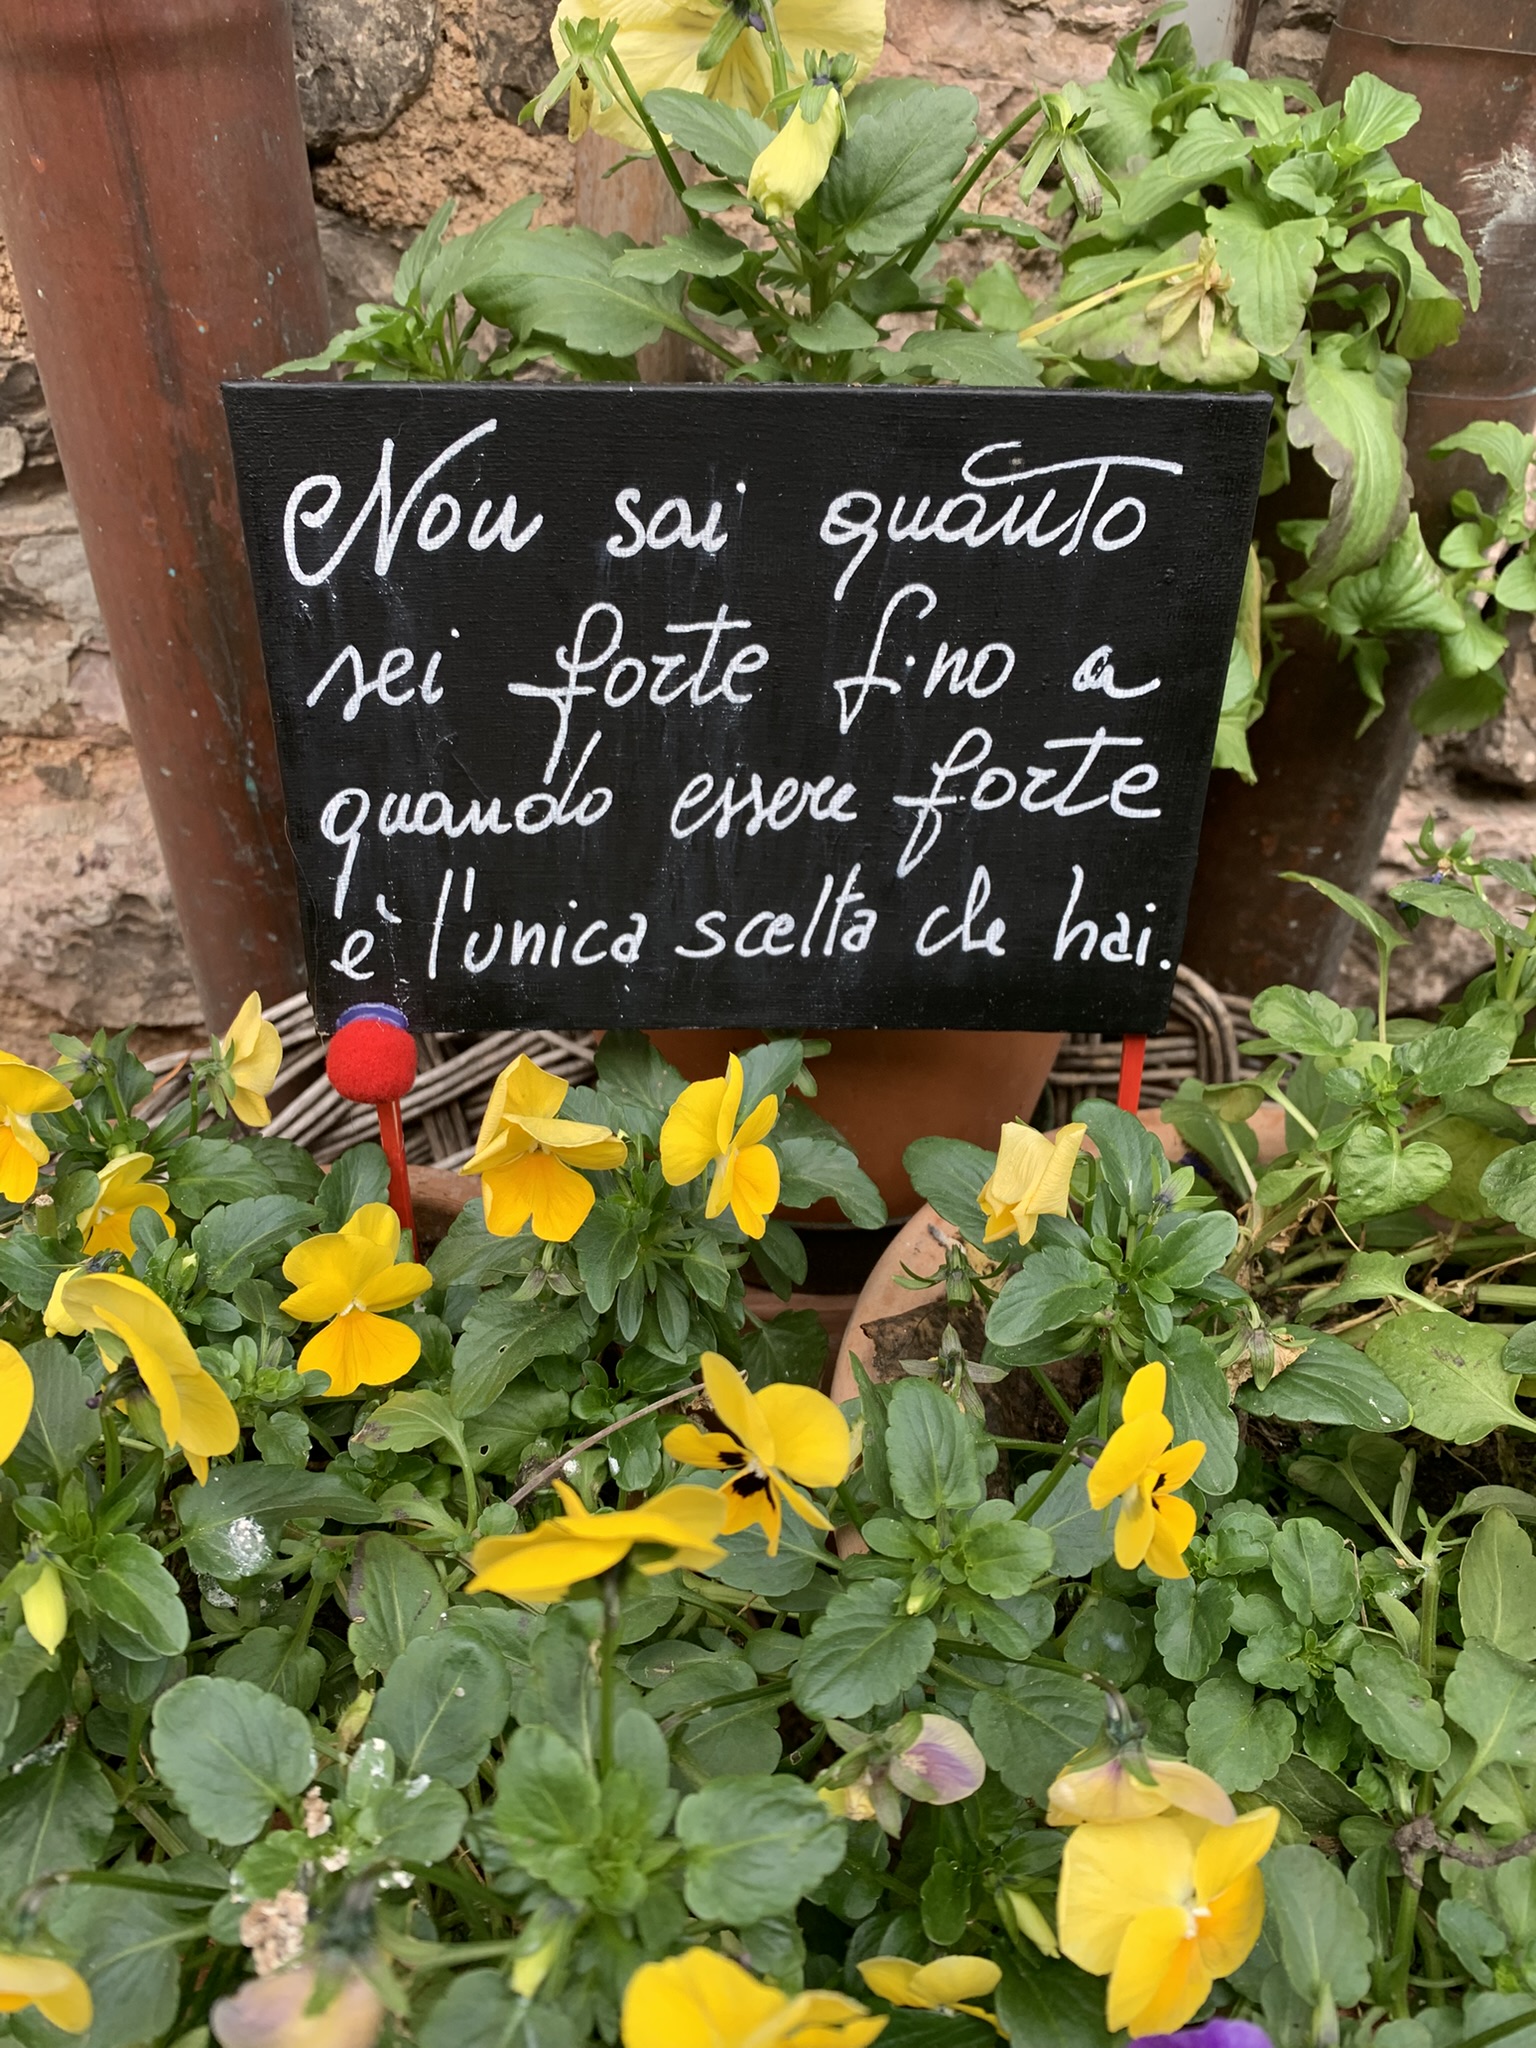 Non sai quanto
sei forte fino a
quando essere forte
è l'unica scelta che hai.